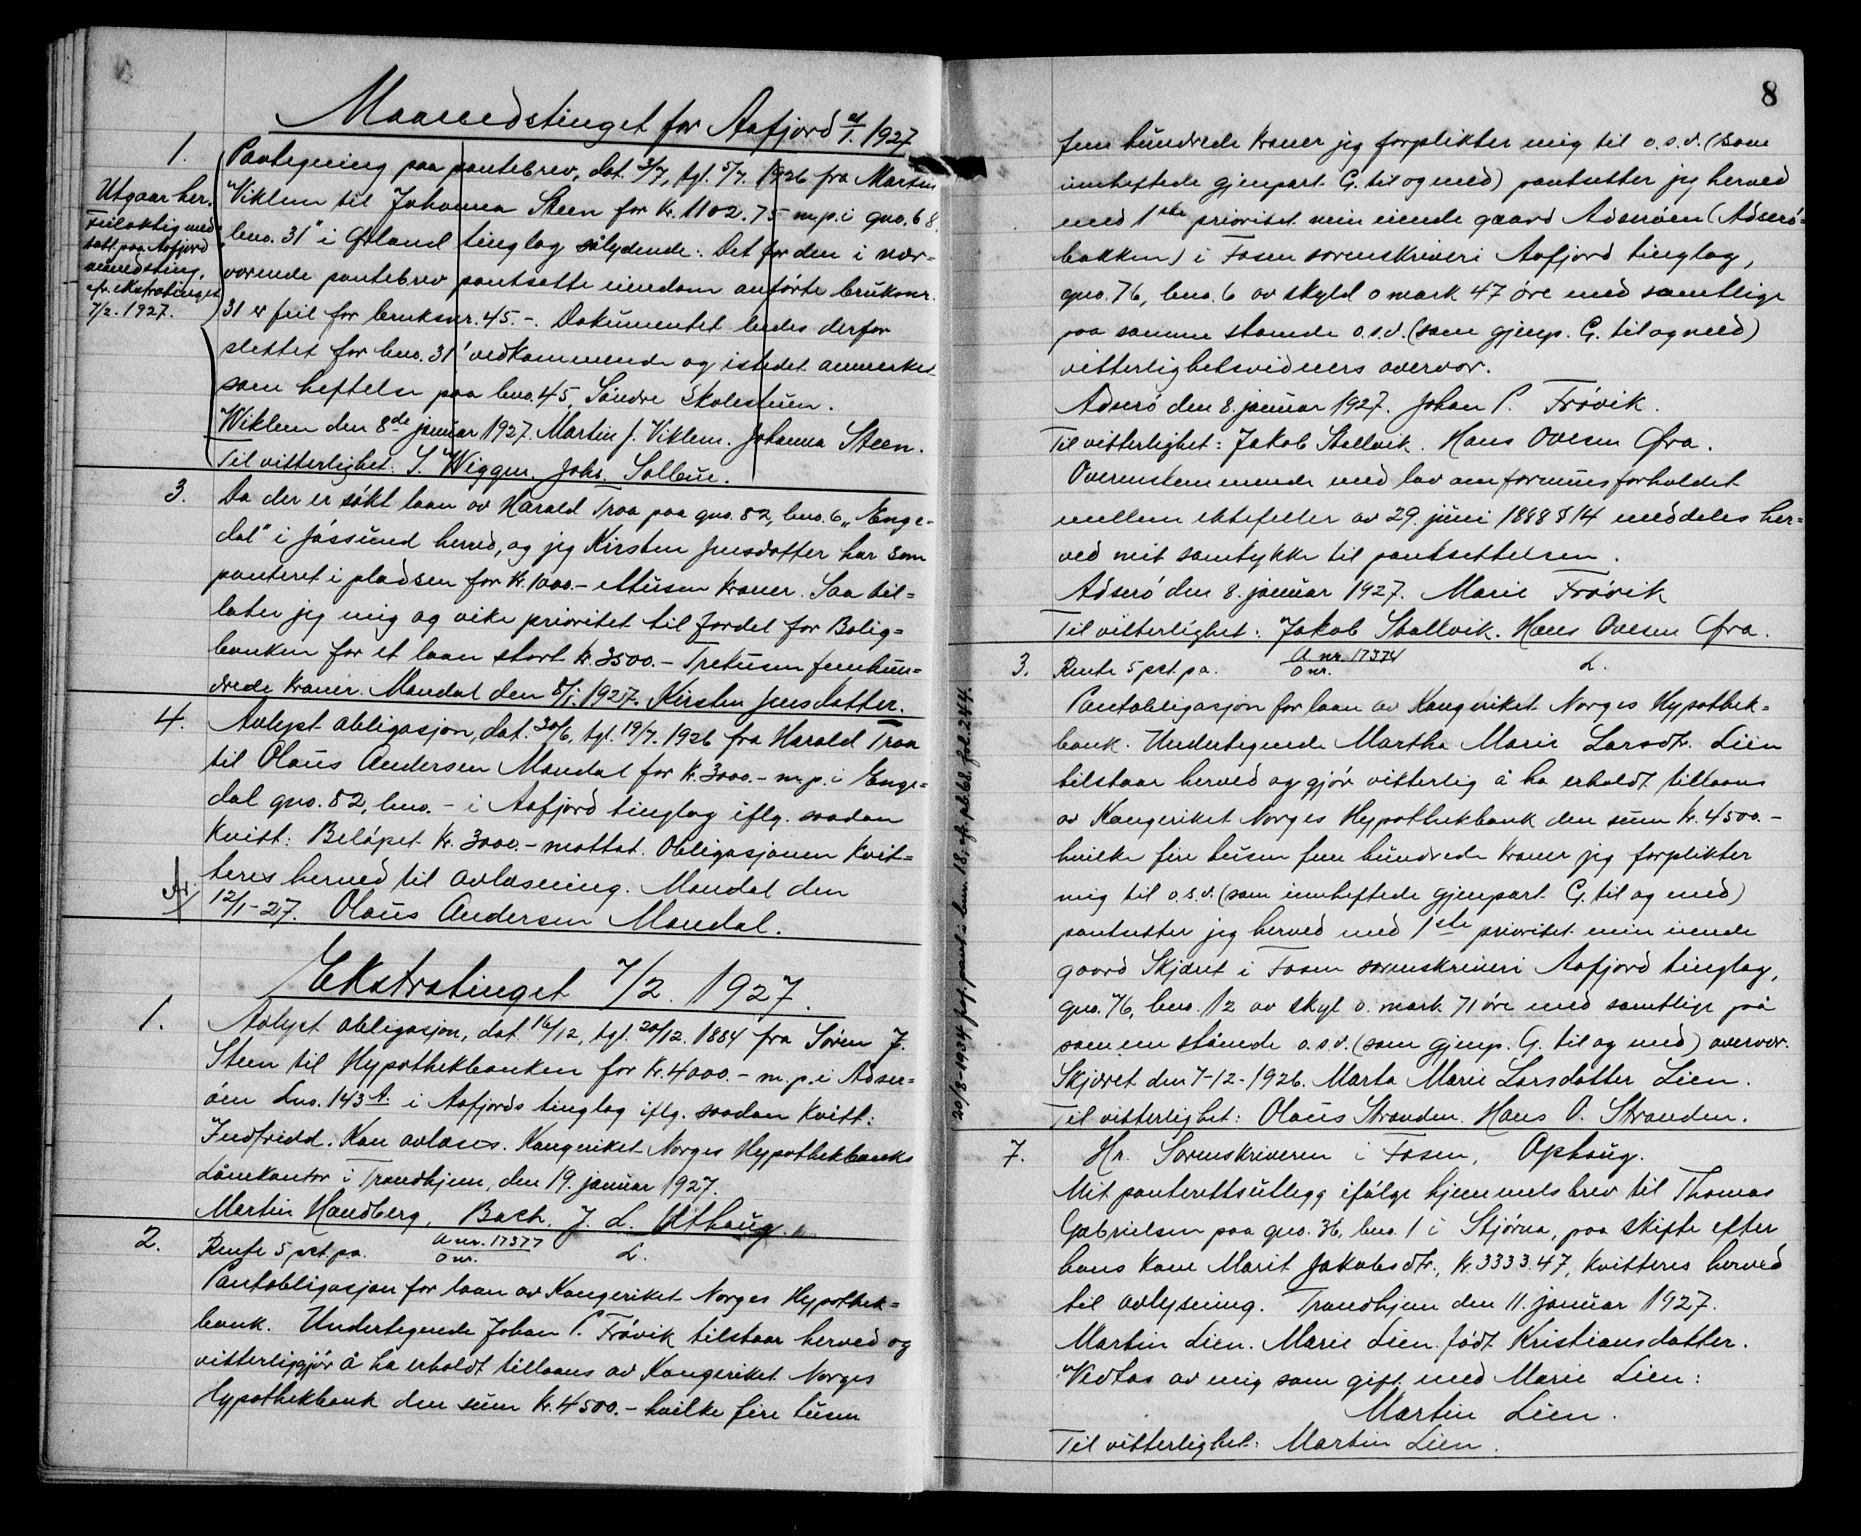 Maanedstinget for Aafjord 21/1. 1927
1. Paategning paa pantebrev, dat. 3/7, tgl. 5/7. 1926 fra Martin
Viklem til Johanna Steen for kr. 1102.75 m.p. i gno. 68,
bno. 31" i Ørland tinglag sålydende: Det for den i nær-
værende pantebrev pantsatte eiendom anførte bruksnr.
31 er feil for bruksnr. 45.-. Dokumentet bedes derfor
slettet for bno. 31' vedkommende og istedet anmerket
som heftelse paa bno. 45, Søndre Skolestuen.
Wiklem den 8de januar 1927. Martin J. Viklem. Johanna Steen.
Til vitterlighet: S. Wiggen. Johs. Solbue.
Utgaar her.
Feilaktig med
tatt paa Aafjord
månedsting,
cfr. ekstratinget
7/2. 1927.
3. Da der er søkt laan av Harald Traa paa gno. 82, bno. 6 „Enge-
dal" i Jøssund herred, og jeg Kirsten Jensdatter har som
panteret i pladsen for kr. 1000.- ettusen kroner. Saa til-
later jeg mig og vike prioritet til fordel for Bolig-
banken for et laan stort kr. 3500.- Tretusen femhun-
drede kroner. Mandal den 8/1. 1927. Kirsten Jensdatter.
4. Avlyst obligasjon, dat. 30/6, tgl. 19/7. 1926 fra Harald Traa
til Olaus Andersen Mandal for kr. 3000.- m.p. i Enge-
dal gno. 82, bno. - i Aafjord tinglag iflg. saadan
kvitt: Beløpet kr. 3000.- mottat. Obligasjonen kvit-
teres herved til avlæsning. Mandal den
12/1-27. Olaus Andersen Mandal.
Ekstratinget 7/2. 1927.
1. Avlyst obligasjon, dat. 16/12, tgl. 20/12. 1884 fra Søren J.
Steen til Hypothekbanken for kr. 4000.- m.p. i Adser-
øen Lno. 143 A. i Aafjords tinglag iflg. saadan kvitt:
Indfridd. Kan avlæses. Kongeriket Norges Hypothekbanks
Lånekontor i Trondhjem, den 19. januar 1927.
Martin Handberg. Bach. J. L. Uthaug.
2. Rente 5 pct. pa. A nr. 17377 L.
O nr.
Pantobligasjon for laan av Kongeriket Norges Hypothek-
bank. Undertegnede Johan P. Frøvik tilstaar herved og
vitterliggjør å ha erholdt tillaans av Kongeriket Norges
Hypothekbank den sum kr. 4500.- hvilke fire tusen
8
fem hundrede kroner jeg forplikter mig til o.s.v. (som
innheftede gjenpart G. til og med) pantsetter jeg herved
med 1ste prioritet min eiende gaard Adserøen (Adserø-
bakken) i Fosen sorenskriveri Aafjord tinglag,
gno. 76, bno. 6 av skyld 0 mark 47 øre med samtlige
paa samme stående o.s.v. (som gjenp. G. til og med)
vitterlighetsvidners overvær.
Adserø den 8. januar 1927. Johan P. Frøvik.
Til vitterlighet: Jakob Stallvik. Hans Ovesen Øra.
Overenstemmende med lov om formuesforholdet
mellem ektefeller av 29. juni 1888 § 14 meddeles her-
ved mit samtykke til pantsettelsen.
Adserø den 8. januar 1927. Marie Frøvik
Til vitterlighet: Jakob Stallvik. Hans Ovesen Øra.
3. Rente 5 pct. pa. A nr. 17374 L.
O nr.
Pantobligasjon for laan av Kongeriket Norges Hypothek-
bank. Undertegnede Martha Marie Larsdtr. Lien
tilstaar herved og gjør vitterlig å ha erholdt tillaans
av Kongeriket Norges Hypothekbank den sum kr. 4500.-
hvilke fire tusen fem hundrede kroner jeg forplikter
mig til o.s.v. (som innheftede gjenpart G. til og med)
pantsetter jeg herved med 1ste prioritet min eiende
gaard Skjæret i Fosen sorenskriveri Aafjord tinglag,
gno. 76, bno. 12 av skyl 0. mark 71 øre med samtlige på
sammen stående o.s.v. (som gjenp. G. til og med) overvær.
Skjæret den 7-12-1926. Marta Marie Larsdatter Lien.
Til vitterlighet: Olaus Stranden. Hans O. Stranden.
20/8-1934 frf. pant i bno 18, cfr. pb.bl. fol. 244.
7. Hr. Sorenskriveren i Fosen, Ophaug.
Mit panterettsutlegg ifølge hjemmelsbrev til Thomas
Gabrielsen paa gno. 36, bno. 1 i Stjørna, paa skifte efter
hans kone Marit Jakobsdtr., kr. 3333.47, kvitteres herved
til avlysning. Trondhjem den 11. januar 1927.
Martin Lien. Marie Lien født Kristiansdatter.
Vedtas av mig som gift med Marie Lien:
Martin Lien.
Til vitterlighet: Martin Lien.